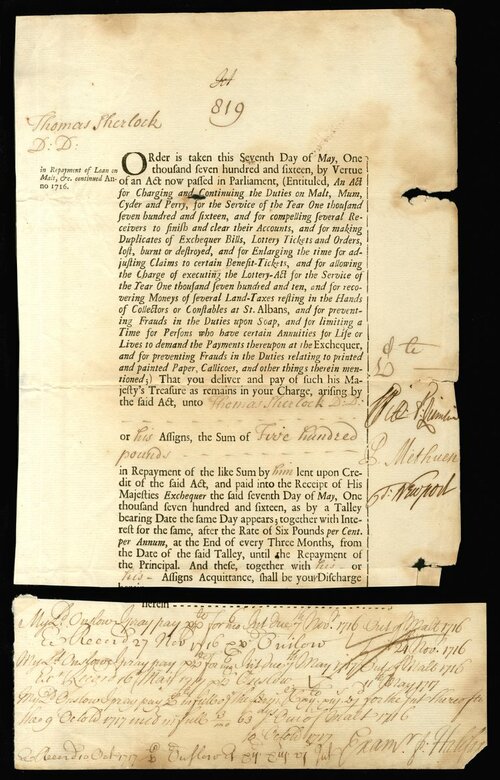 819
Thomas Sherlock
D: D:
in Repayment of Loan on
Malt, &c. continued An-
no 1716.
ORder is taken this Seventh Day of May, One
thousand seven hundred and sixteen, by Vertue
of an Act now passed in Parliament, (Entituled, An Act
for Charging and Continuing the Duties on Malt, Mum,
Cyder and Perry, for the Service of the Year One thousand
seven hundred and sixteen, and for compelling several Re-
ceivers to finish and clear their Accounts, and for making
Duplicates of Exchequer Bills, Lottery Tickets and Orders,
lost, burnt or destroyed, and for Enlarging the time for ad-
justing Claims to certain Benefit-Tickets, and for allowing
the Charge of executing the Lottery-Act for the Service of
the Year One thousand seven hundred and ten, and for reco-
vering Moneys of several Land-Taxes resting in the Hands
of Collectors or Constables at St. Albans, and for prevent-
ing Frauds in the Duties upon Soap, and for limiting a
Time for Persons who have certain Annuities for Life or
Lives to demand the Payments thereupon at the Exchequer,
and for preventing Frauds in the Duties relating to printed
and painted Paper, Callicoes, and other things therein men-
tioned;) That you deliver and pay of such his Ma-
jesty's Treasure as remains in your Charge, arising by
the said Act, unto Thomas Sherlock D: D:
or his Assigns, the Sum of Five hundred
pounds
in Repayment of the like Sum by him lent upon Cre-
dit of the said Act, and paid into the Receipt of His
Majesties Exchequer the said seventh Day of May, One
thousand seven hundred and sixteen, as by a Talley
bearing Date the same Day appears; together with Inte-
rest for the same, after the Rate of Six Pounds per Cent.
per Annum, at the End of every Three Months, from
the Date of the said Talley, until the Repayment of
the Principal. And these, together with his or
his Assigns Acquittance, shall be your Discharge
herein
Methuen
Newport
Onslow pray pay for his Int due 7 Nov. 1716 Out of Malt 1716
Record 27 Nov 1716 Onslow 21 Nov. 1716
Onslow pray pay for his Int due 7 May 1717 Out of Malt 1716
May 1717 Onslow May 1717
Onslow pray pay for the Int
Out of Malt 1716
10 Octob 1717
Record 10 Oct 1717 Onslow
Halifax